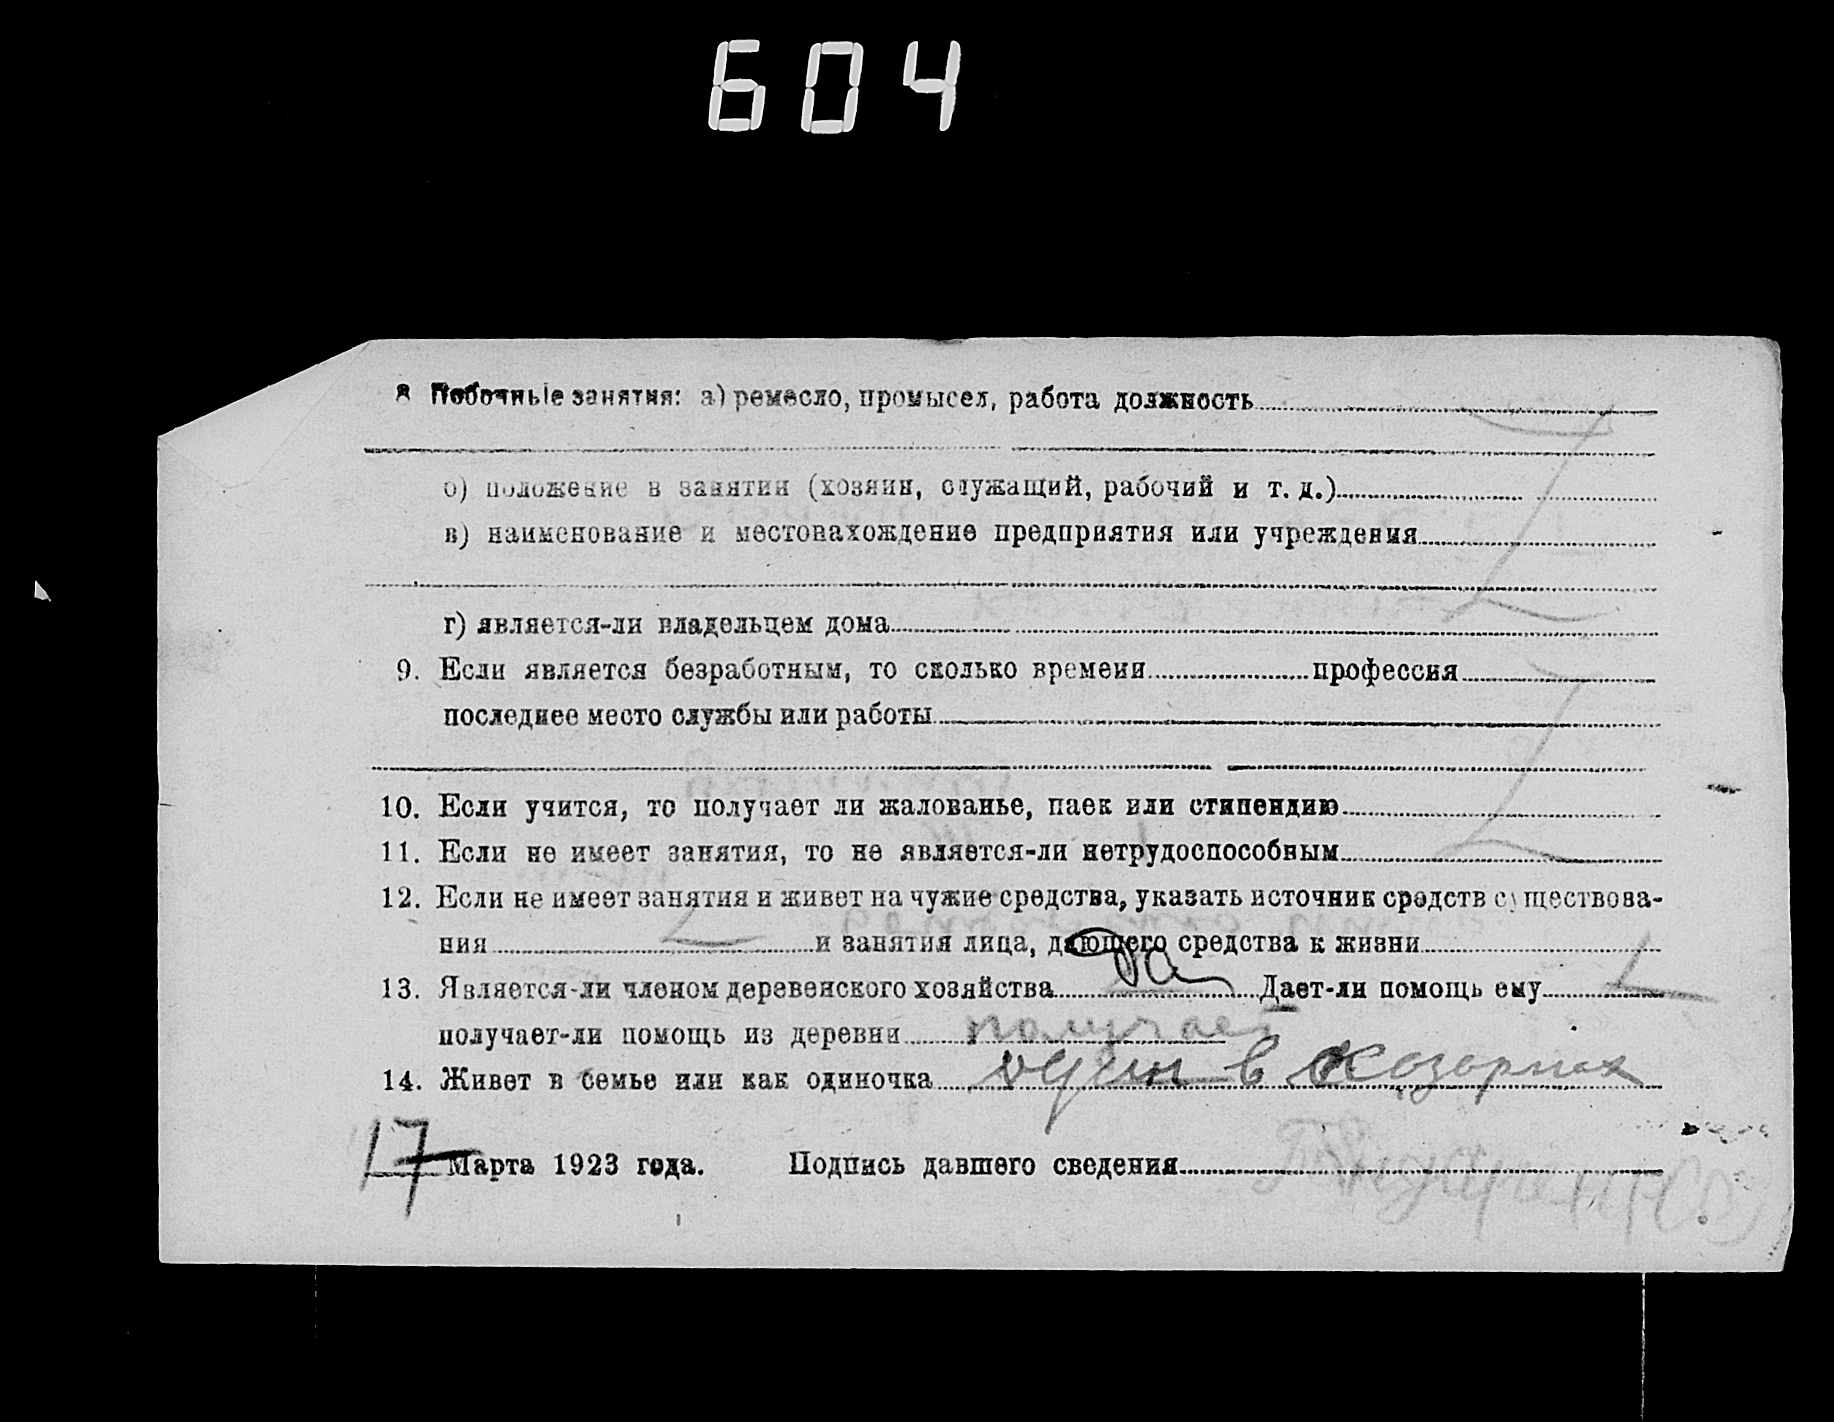 604
8 Побочные занятия: а) ремесло, промысел, работа должность
б) положение в занятии (хозяин, служащий, рабочий и т. д.)
в) наименование и местонахождение предприятия или учреждения
г) является-ли владельцем дома
9. Если является безработным, то сколько времени профессия
последнее место службы или работы
10. Если учится, то получает ли жалованье, паек или стипендию
11. Если не имеет занятия, то не является-ли нетрудоспособным
12. Если не имеет занятия и живет на чужие средства, указать источник средств существова-
ния и занятия лица, дающего средства к жизни
13. Является-ли членом деревенского хозяйства да Дает-ли помощь ему
получает-ли помощь из деревни получает
14. Живет в семье или как одиночка один в
17 Марта 1923 года. Подпись давшего сведения